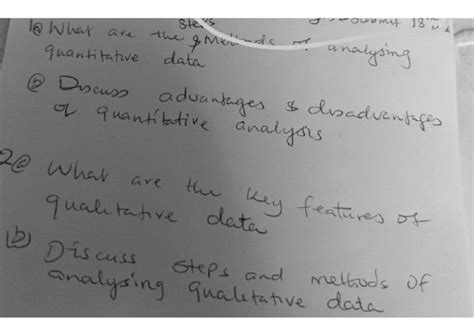 Steps
Submit 18
1(a) What are the & Methods of analysing
quantitative data
(b) Discuss advantages & disadvantages
of quantitative analysis
2(a) What are the key features of
qualitative data
(b) Discuss steps and methods of
analysing qualitative data